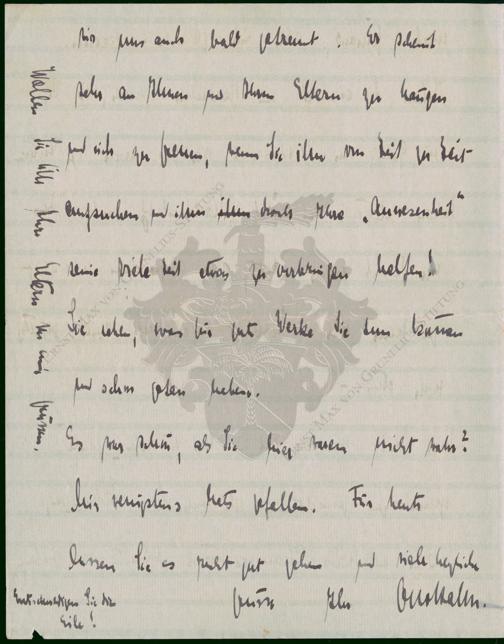 wir uns auch bald getrennt. Er scheint
sehr an Ihnen und Ihren Eltern zu hängen
und sich zu freuen, wenn Sie ihn von Zeit zu Zeit
aufsuchen und ihm durch Ihre „Anwesenheit“
seine viele Zeit etwas zu verbringen helfen!
Sie sehen, was für gute Werke Sie tun können
und schon getan haben.
Es war schön, als Sie hier waren nicht wahr?
Mir wenigstens hats gefallen. Für heute
lassen Sie es recht gut gehen und viele herzliche
Grüsse Ihr Otto Hahn.
Entschuldigen Sie die
Eile!
Wollen Sie bitte Ihre Eltern von mir grüssen.
ERNST-MAX VON GRUNELIUS-STIFTUNG
ERNST-MAX VON GRUNELIUS-STIFTUNG